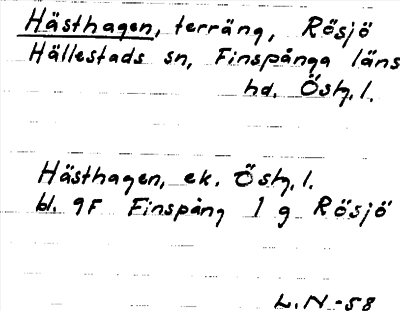 Hästhagen, terräng, Rösjö
Hällestads sn, Finspånga läns
hd. Östg. l.
Hästhagen, ek. Östg. l.
bl. 9F Finspång 1 g Rösjö
L.N-58